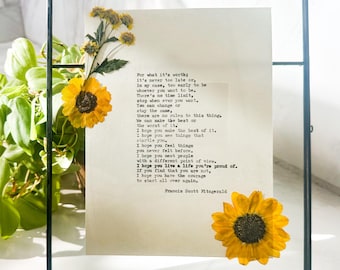 For what it's worth;
it's never too late or,
in my case, too early to be
whoever you want to be.
There's no time limit,
stop when ever you want.
You can change or
stay the same,
there are no rules to this thing.
We can make the best or
the worst of it.
I hope you make the best of it.
I hope you see things that
startle you.
I hope you feel things
you never felt before.
I hope you meet people
with a different point of view.
I hope you live a life you're proud of.
If you find that you are not,
I hope you have the courage
to start all over again.
Francis Scott Fitzgerald